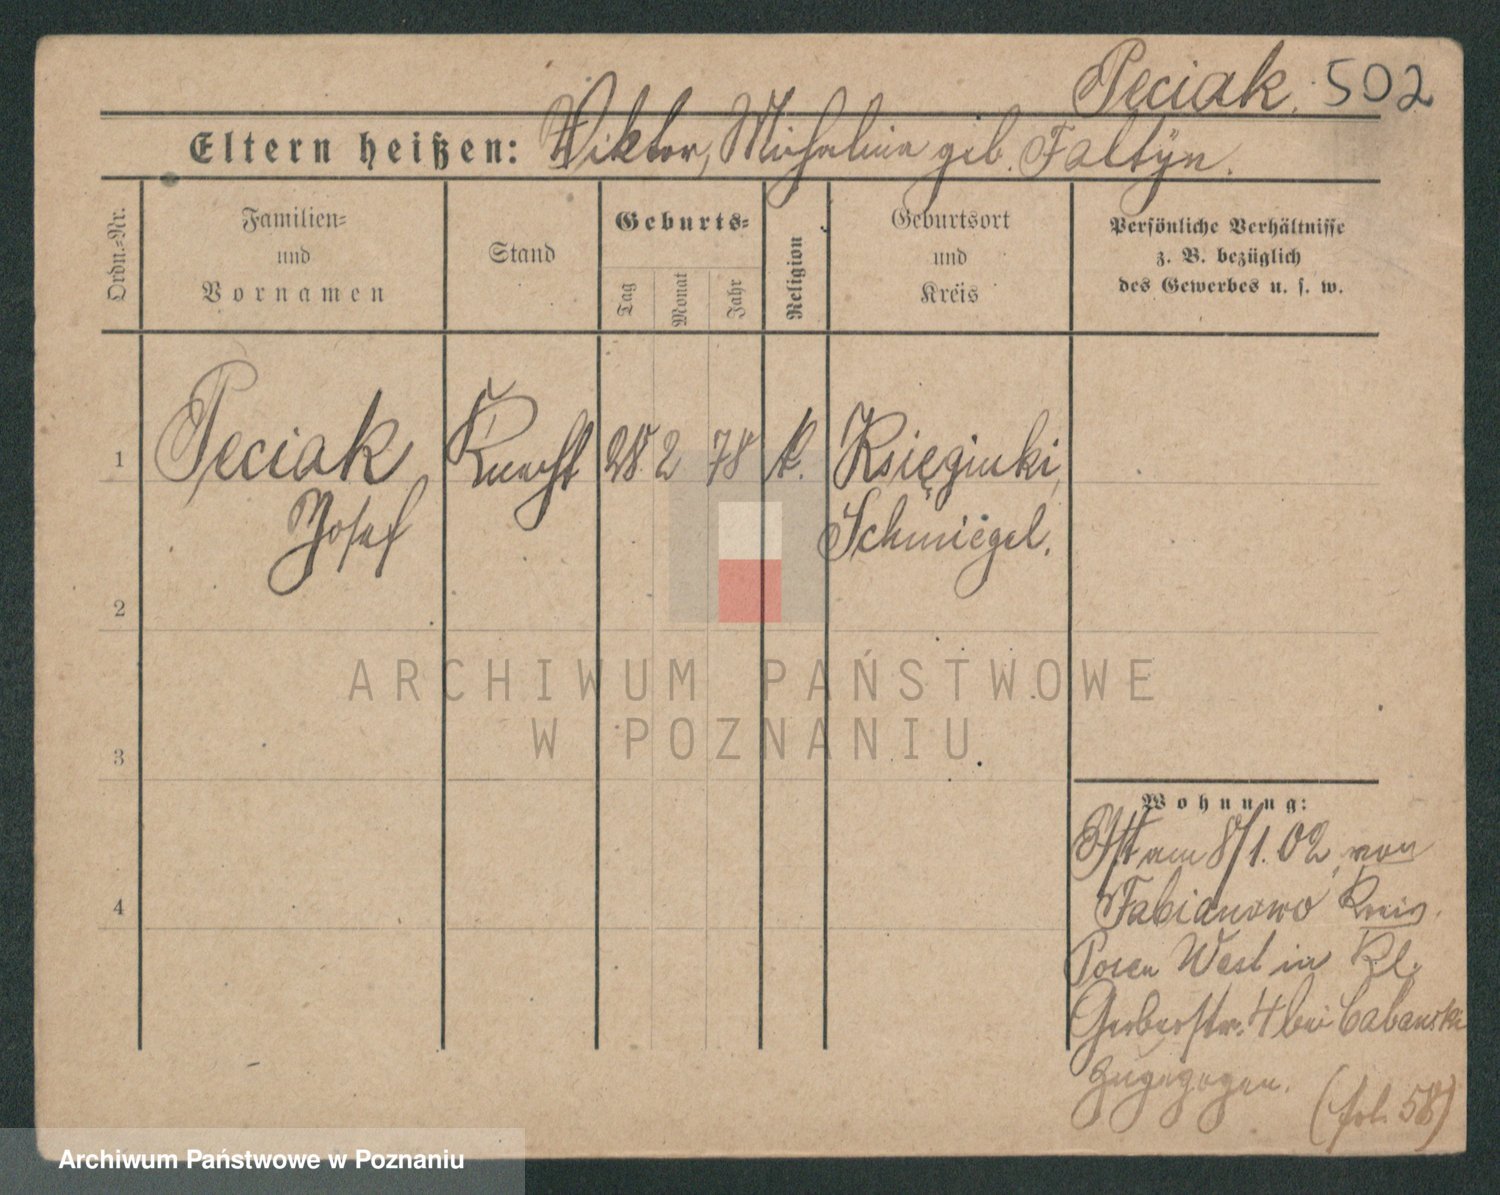 Peciak. 502
Eltern heißen: Wiktor, Michalina geb. Faltyn.
Ordn.-Nr.
Familien-
und
Vornamen
Stand
Geburts-
Tag
Monat
Jahr
Religion
Geburtsort
und
Kreis
Persönliche Verhältnisse
z. B. bezüglich
des Gewerbes u. s. w.
1 Peciak Knecht 28. 2 78 k. Księginki,
Josef Schmiegel.
2
ARCHIWUM PAŃSTWOWE
W POZNANIU
3
Wohnung:
Ist am 8/1. 02 von
4 Fabianowo Kreis.
Posen West in Kl.
Gerberstr. 4 bei Cabanski
zugezogen.
(fol. 58)
Archiwum Państwowe w Poznaniu